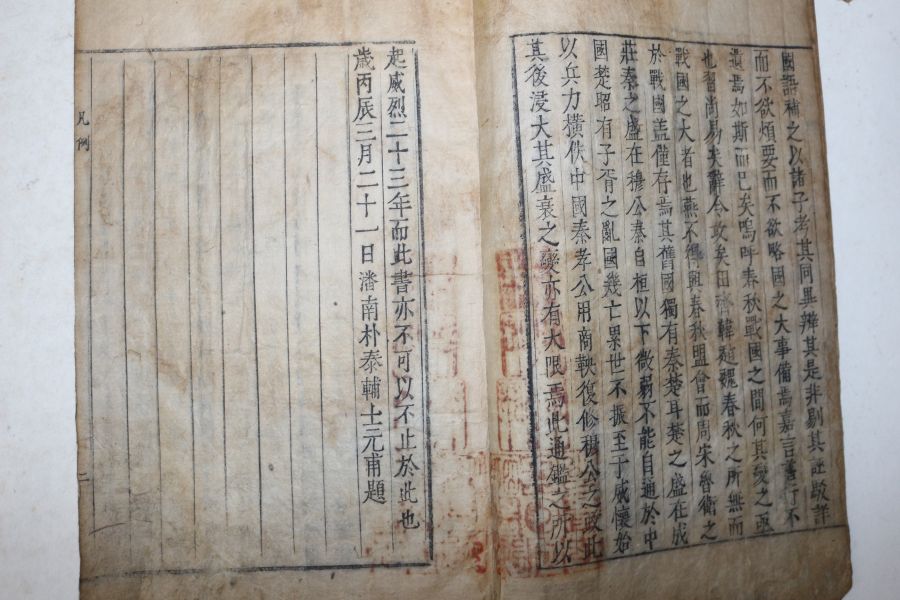 國語補之以諸子考其同異辨其是非剔其誣駁詳
而不欲煩要而不欲略國之大事備焉嘉言善行不
遺焉如斯而已矣嗚呼春秋戰國之間何其變之亟
也習尚易矣辭令改矣田齊韓趙魏春秋之所無而
戰國之大者也燕不得與春秋盟會而周宋魯衛之
於戰國盖僅存焉其舊國獨有秦楚耳楚之盛在成
莊秦之盛在穆公秦自桓以下微弱不能自通於中
國楚昭有子胥之亂國幾亡累世不振至于威懷始
以兵力橫佚中國秦孝公用商鞅復修穆公之政此
其後浸大其盛衰之變亦有大限焉此通鑑之所以
起威烈二十三年而此書亦不可以不止於此也
歲丙辰三月二十一日潘南朴泰輔士元甫題
凡例
二